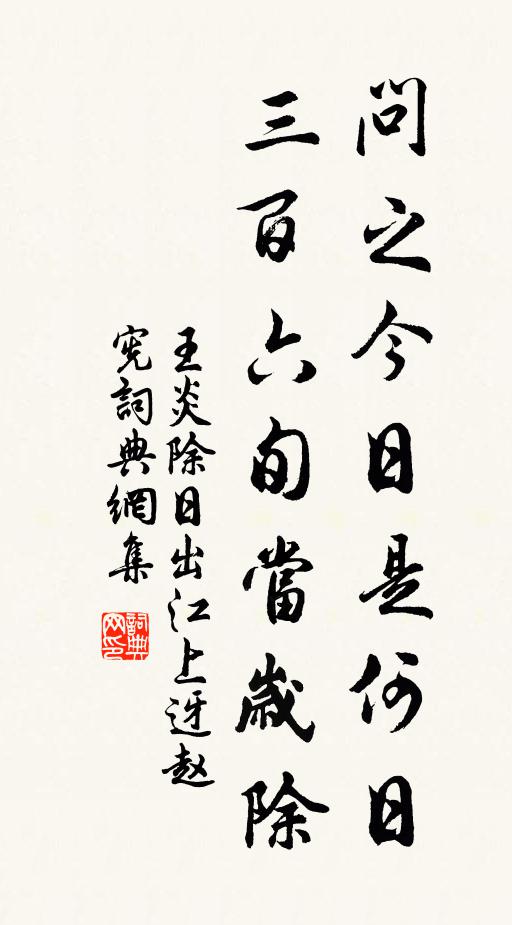 問之今日是何日
三百六旬當歲除
王炎除日出江上迓赵
宪詞典網集
詞典网印